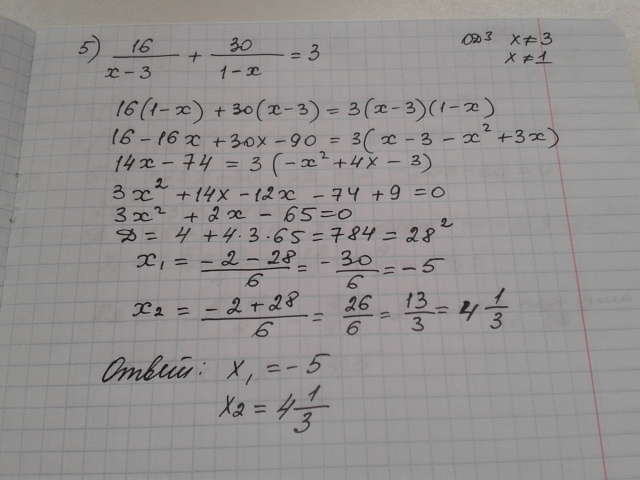 5) 16/(x-3) + 30/(1-x) = 3 ОДЗ x≠3
x≠1
16(1-x) + 30(x-3) = 3(x-3)(1-x)
16-16x+30x-90 = 3(x-3-x²+3x)
14x-74 = 3(-x²+4x-3)
3x²+14x-12x-74+9=0
3x²+2x-65=0
Д= 4+4·3·65=784=28²
x₁ = (-2-28)/6 = -30/6 = -5
x₂ = (-2+28)/6 = 26/6 = 13/3 = 4 1/3
Ответ: x₁=-5
x₂ = 4 1/3